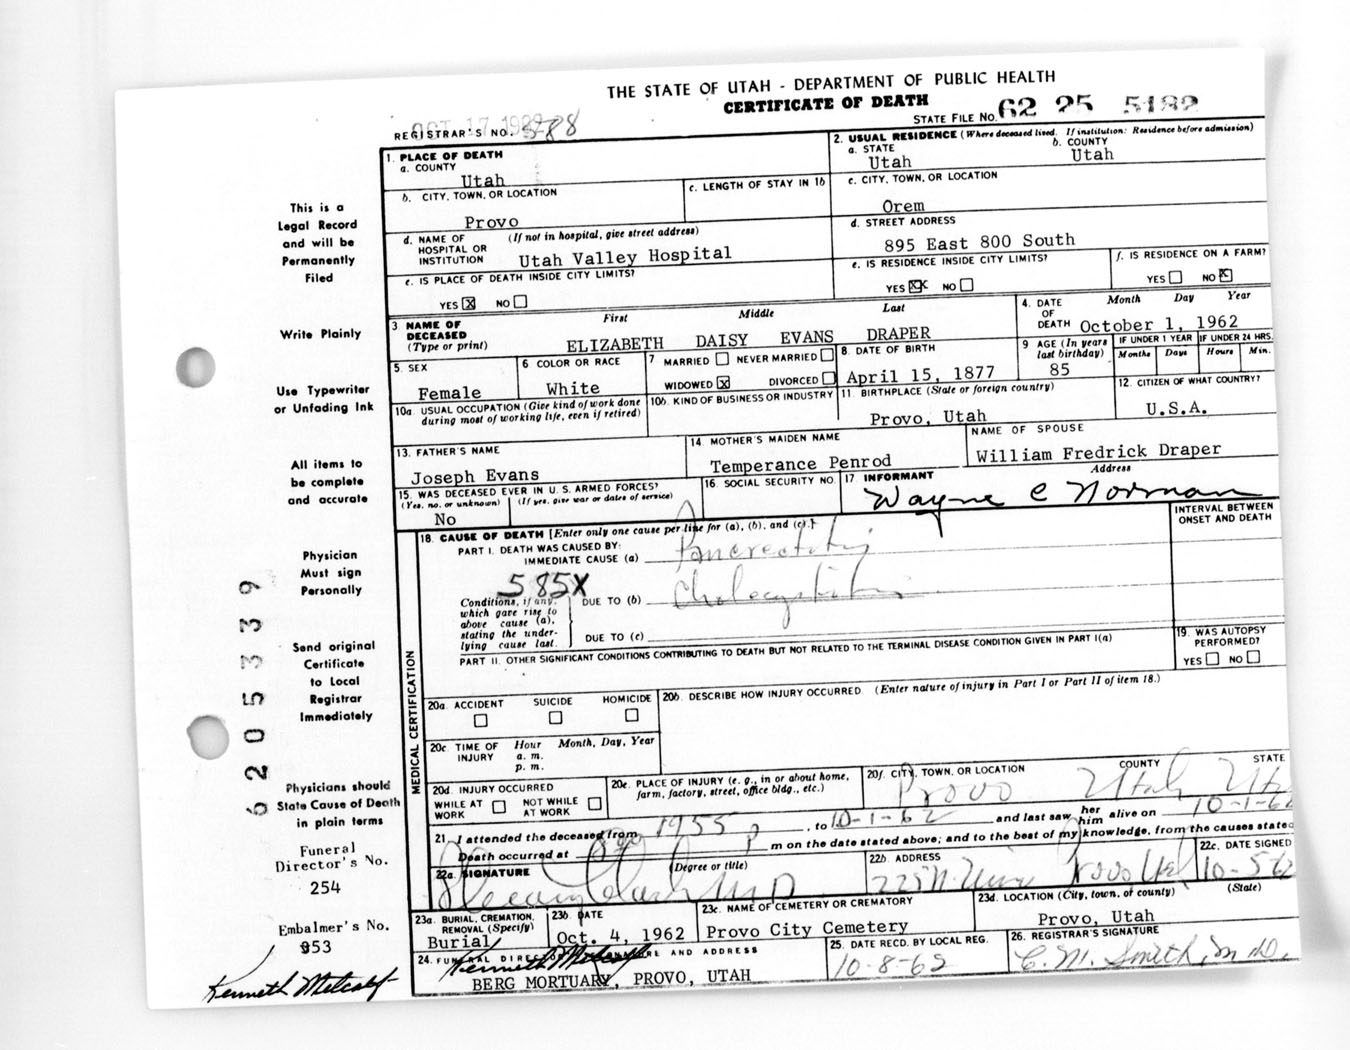 THE STATE OF UTAH - DEPARTMENT OF PUBLIC HEALTH
CERTIFICATE OF DEATH
STATE FILE No. 62 25 5182
REGISTRAR'S NO.
1. PLACE OF DEATH
a. COUNTY
Utah
2. USUAL RESIDENCE (Where deceased lived. If institution: Residence before admission)
a. STATE
Utah
b. COUNTY
Utah
b. CITY, TOWN, OR LOCATION
Provo
c. LENGTH OF STAY IN 1b
c. CITY, TOWN, OR LOCATION
Orem
d. NAME OF HOSPITAL OR INSTITUTION
(If not in hospital, give street address)
Utah Valley Hospital
d. STREET ADDRESS
895 East 800 South
e. IS PLACE OF DEATH INSIDE CITY LIMITS?
YES X NO
e. IS RESIDENCE INSIDE CITY LIMITS?
YES X NO
f. IS RESIDENCE ON A FARM?
YES NO X
3 NAME OF DECEASED (Type or print)
First Middle Last
ELIZABETH DAISY EVANS DRAPER
4. DATE OF DEATH
Month Day Year
October 1, 1962
5. SEX
Female
6 COLOR OR RACE
White
7 MARRIED NEVER MARRIED
WIDOWED X DIVORCED
8. DATE OF BIRTH
April 15, 1877
9 AGE (In years last birthday)
85
IF UNDER 1 YEAR IF UNDER 24 HRS.
Months Days Hours Min.
10a USUAL OCCUPATION (Give kind of work done during most of working life, even if retired)
10b. KIND OF BUSINESS OR INDUSTRY
11 BIRTHPLACE (State or foreign country)
Provo, Utah
12. CITIZEN OF WHAT COUNTRY?
U.S.A.
13. FATHER'S NAME
Joseph Evans
14. MOTHER'S MAIDEN NAME
Temperance Penrod
NAME OF SPOUSE
William Fredrick Draper
15. WAS DECEASED EVER IN U.S. ARMED FORCES?
(Yes, no, or unknown) (If yes, give war or dates of service)
No
16. SOCIAL SECURITY NO.
17 INFORMANT Address
Wayne C Norman
18. CAUSE OF DEATH [Enter only one cause per line for (a), (b), and (c).]
INTERVAL BETWEEN ONSET AND DEATH
PART I. DEATH WAS CAUSED BY:
IMMEDIATE CAUSE (a) Pancreatitis
585X
Conditions, if any, which gave rise to above cause (a), stating the underlying cause last.
DUE TO (b) Cholecystitis
DUE TO (c)
PART II. OTHER SIGNIFICANT CONDITIONS CONTRIBUTING TO DEATH BUT NOT RELATED TO THE TERMINAL DISEASE CONDITION GIVEN IN PART I(a)
19. WAS AUTOPSY PERFORMED?
YES NO
20a. ACCIDENT SUICIDE HOMICIDE
20b. DESCRIBE HOW INJURY OCCURRED. (Enter nature of injury in Part I or Part II of item 18.)
20c. TIME OF INJURY
Hour Month, Day, Year
a. m.
p. m.
20d. INJURY OCCURRED
WHILE AT WORK NOT WHILE AT WORK
20e. PLACE OF INJURY (e. g., in or about home, farm, factory, street, office bldg., etc.)
20f. CITY, TOWN, OR LOCATION COUNTY STATE
Provo Utah
21. I attended the deceased from 1955, to 10-1-62 and last saw her him alive on 10-1-62
Death occurred at m on the date stated above; and to the best of my knowledge, from the causes stated
22a. SIGNATURE (Degree or title)
22b. ADDRESS
22c. DATE SIGNED
10-5-62
23a. BURIAL, CREMATION, REMOVAL (Specify)
Burial
23b. DATE
Oct. 4, 1962
23c. NAME OF CEMETERY OR CREMATORY
Provo City Cemetery
23d. LOCATION (City, town, or county) (State)
Provo, Utah
24. FUNERAL DIRECTOR'S SIGNATURE AND ADDRESS
Kenneth Metcalf
BERG MORTUARY, PROVO, UTAH
25. DATE RECD. BY LOCAL REG.
10-8-62
26. REGISTRAR'S SIGNATURE
C. M. Smith, M.D.
MEDICAL CERTIFICATION
This is a
Legal Record
and will be
Permanently
Filed
Write Plainly
Use Typewriter
or Unfading Ink
All items to
be complete
and accurate
Physician
Must sign
Personally
Send original
Certificate
to Local
Registrar
Immediately
Physicians should
State Cause of Death
in plain terms
Funeral
Director's No.
254
Embalmer's No.
953
Kenneth Metcalf
6205339